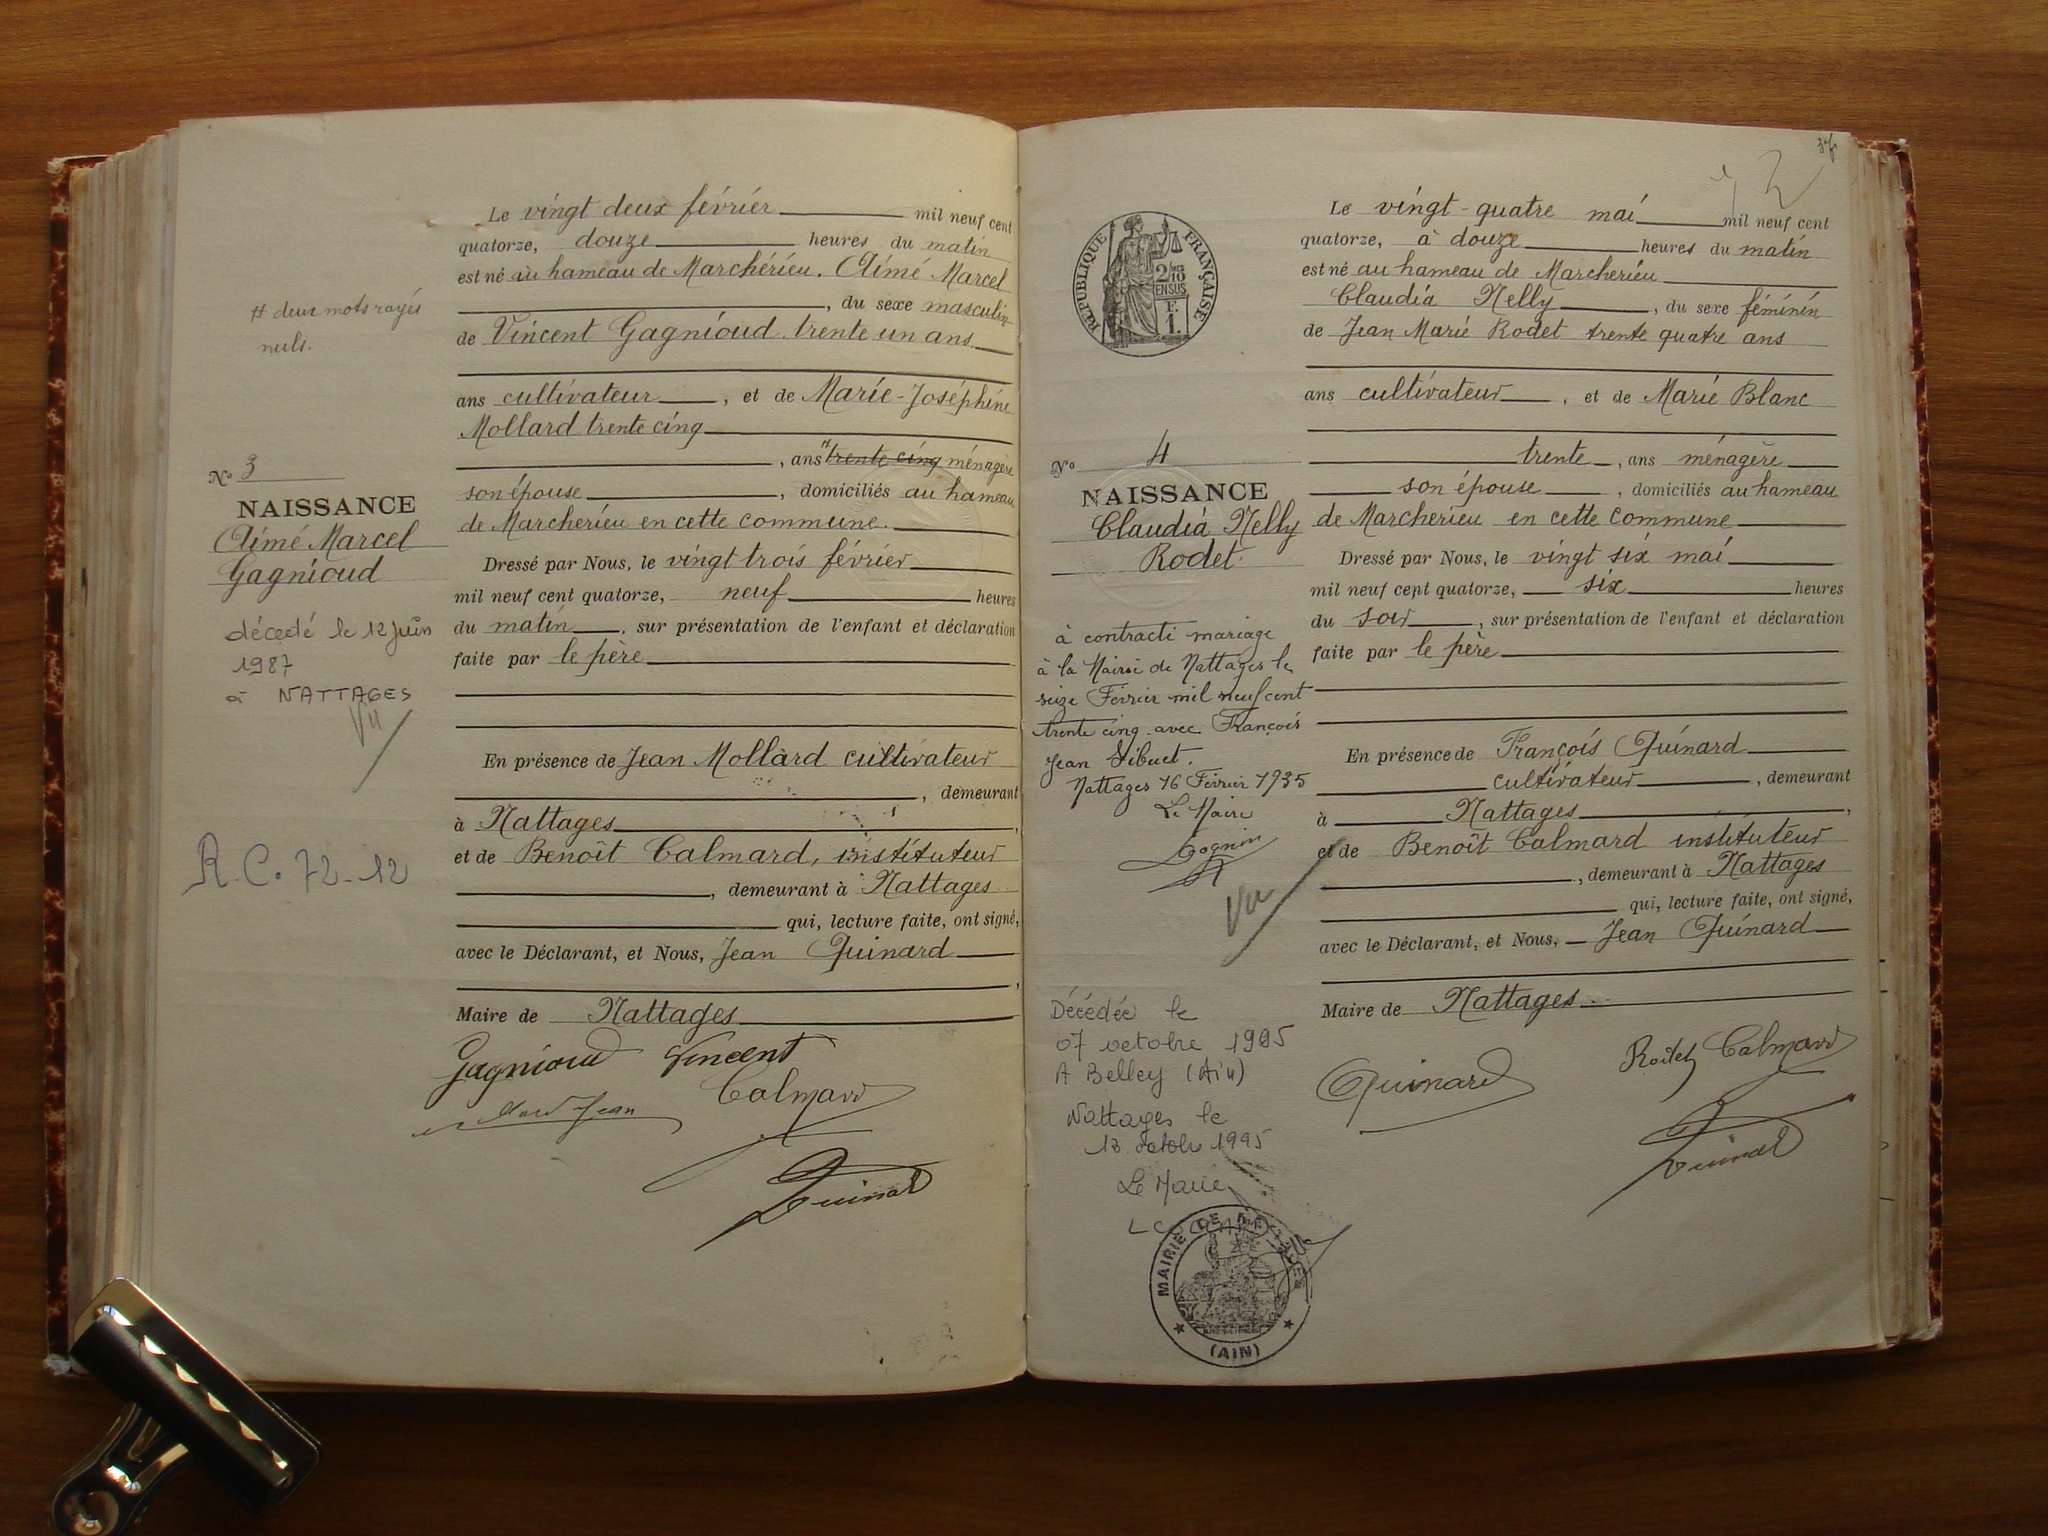 Le vingt deux février mil neuf cent
quatorze, douze heures du matin
est né au hameau de Marchérieu. Aimé Marcel
, du sexe masculin
de Vincent Gagnioud trente un ans
ans cultivateur, et de Marie-Joséphine
Mollard trente cinq
, ans trente cinq ménagère
son épouse, domiciliés au hameau
de Marcherieu en cette commune.
Dressé par Nous, le vingt trois février
mil neuf cent quatorze, neuf heures
du matin, sur présentation de l'enfant et déclaration
faite par le père
En présence de Jean Mollard cultivateur
, demeurant
à Nattages,
et de Benoît Calmard, instituteur
, demeurant à Nattages
qui, lecture faite, ont signé,
avec le Déclarant, et Nous, Jean Quinard
,
Maire de Nattages
Gagnioud Vincent
Jean
Calmard
Quinard
# deux mots rayés
nuls.
No 3
NAISSANCE
Aimé Marcel
Gagnioud
décédé le 12 juin
1987
à NATTAGES
Vu
R.C. 72-12
2
Le vingt-quatre mai mil neuf cent
quatorze, à douze heures du matin
est né au hameau de Marcherieu
Claudia Nelly, du sexe féminin
de Jean Marie Rodet trente quatre ans
ans cultivateur, et de Marie Blanc
trente, ans ménagère
son épouse, domiciliés au hameau
de Marcherieu en cette commune
Dressé par Nous, le vingt six mai
mil neuf cent quatorze, six heures
du soir, sur présentation de l'enfant et déclaration
faite par le père
En présence de François Quinard
cultivateur, demeurant
à Nattages,
et de Benoît Calmard instituteur
, demeurant à Nattages
qui, lecture faite, ont signé,
avec le Déclarant, et Nous, Jean Quinard
Maire de Nattages
Rodet Calmard
Quinard
Quinard
RÉPUBLIQUE FRANÇAISE
2/10
EN SUS
F.
1.
No 4
NAISSANCE
Claudia Nelly
Rodet
à contracté mariage
à la Mairie de Nattages le
seize Février mil neuf cent
trente cinq avec François
Jean Sibuet.
Nattages 16 Février 1935
Le Maire
Gognin
Vu
Décédée le
07 octobre 1995
A Belley (Ain)
Nattages le
13 octobre 1995
Le Maire
MAIRIE DE NATTAGES
(AIN)